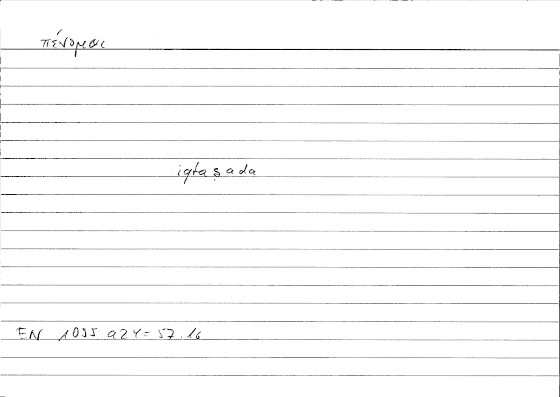 πένομαι
iqtaṣada
EN 1095 a24 = 57.16